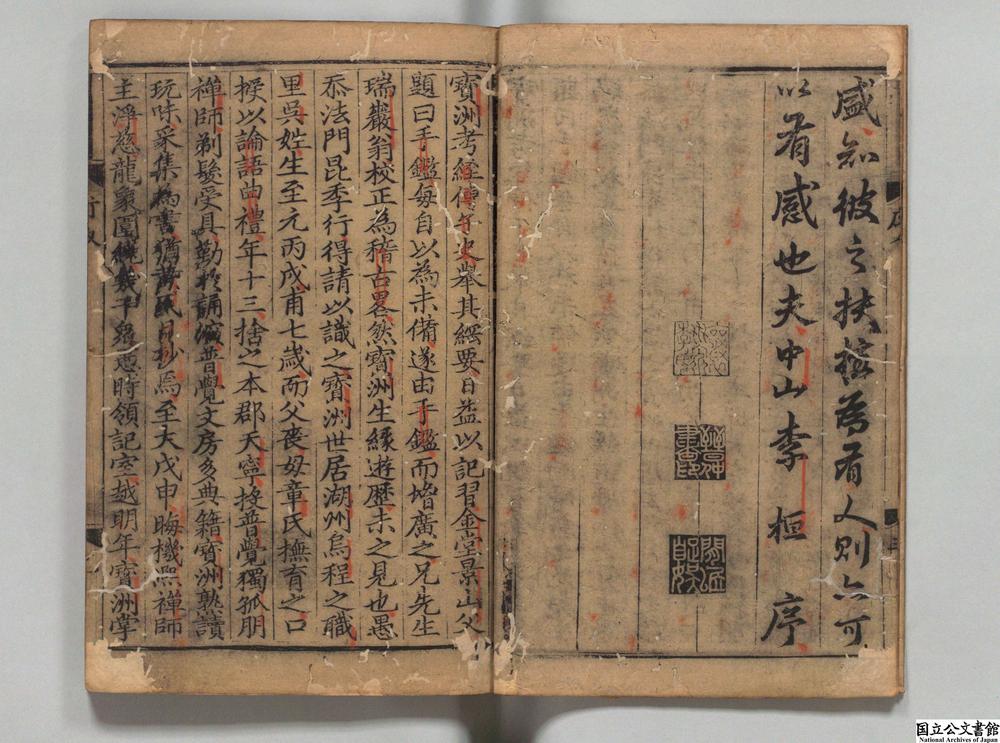 感知彼之扶植為有人則亦可
以有感也夫中山李桓序
晉仲書印
閒居自娛
寶洲考經傳子史舉其綱要日益以記習金堂景山父
題曰手鑑每自以為未備遂由手鑑而增廣之兄先生
瑞巖翁校正為稽古畧然寶洲生緣遊歷未之見也愚
忝法門昆季行得請以識之寶洲世居湖州烏程之職
里吳姓生至元丙戌甫七歲而父喪母章氏撫育之口
授以論語曲禮年十三捨之本郡天寧投普覺獨孤朋
禪師剃髮受具勤於誦演普覺文房多典籍寶洲熟讀
玩味采集為書猶黃氏日抄焉至大戊申晦機熙禪師
主淨慈龍象圍繞幾千緇悳時領記室越明年寶洲掌
国立公文書館
National Archives of Japan